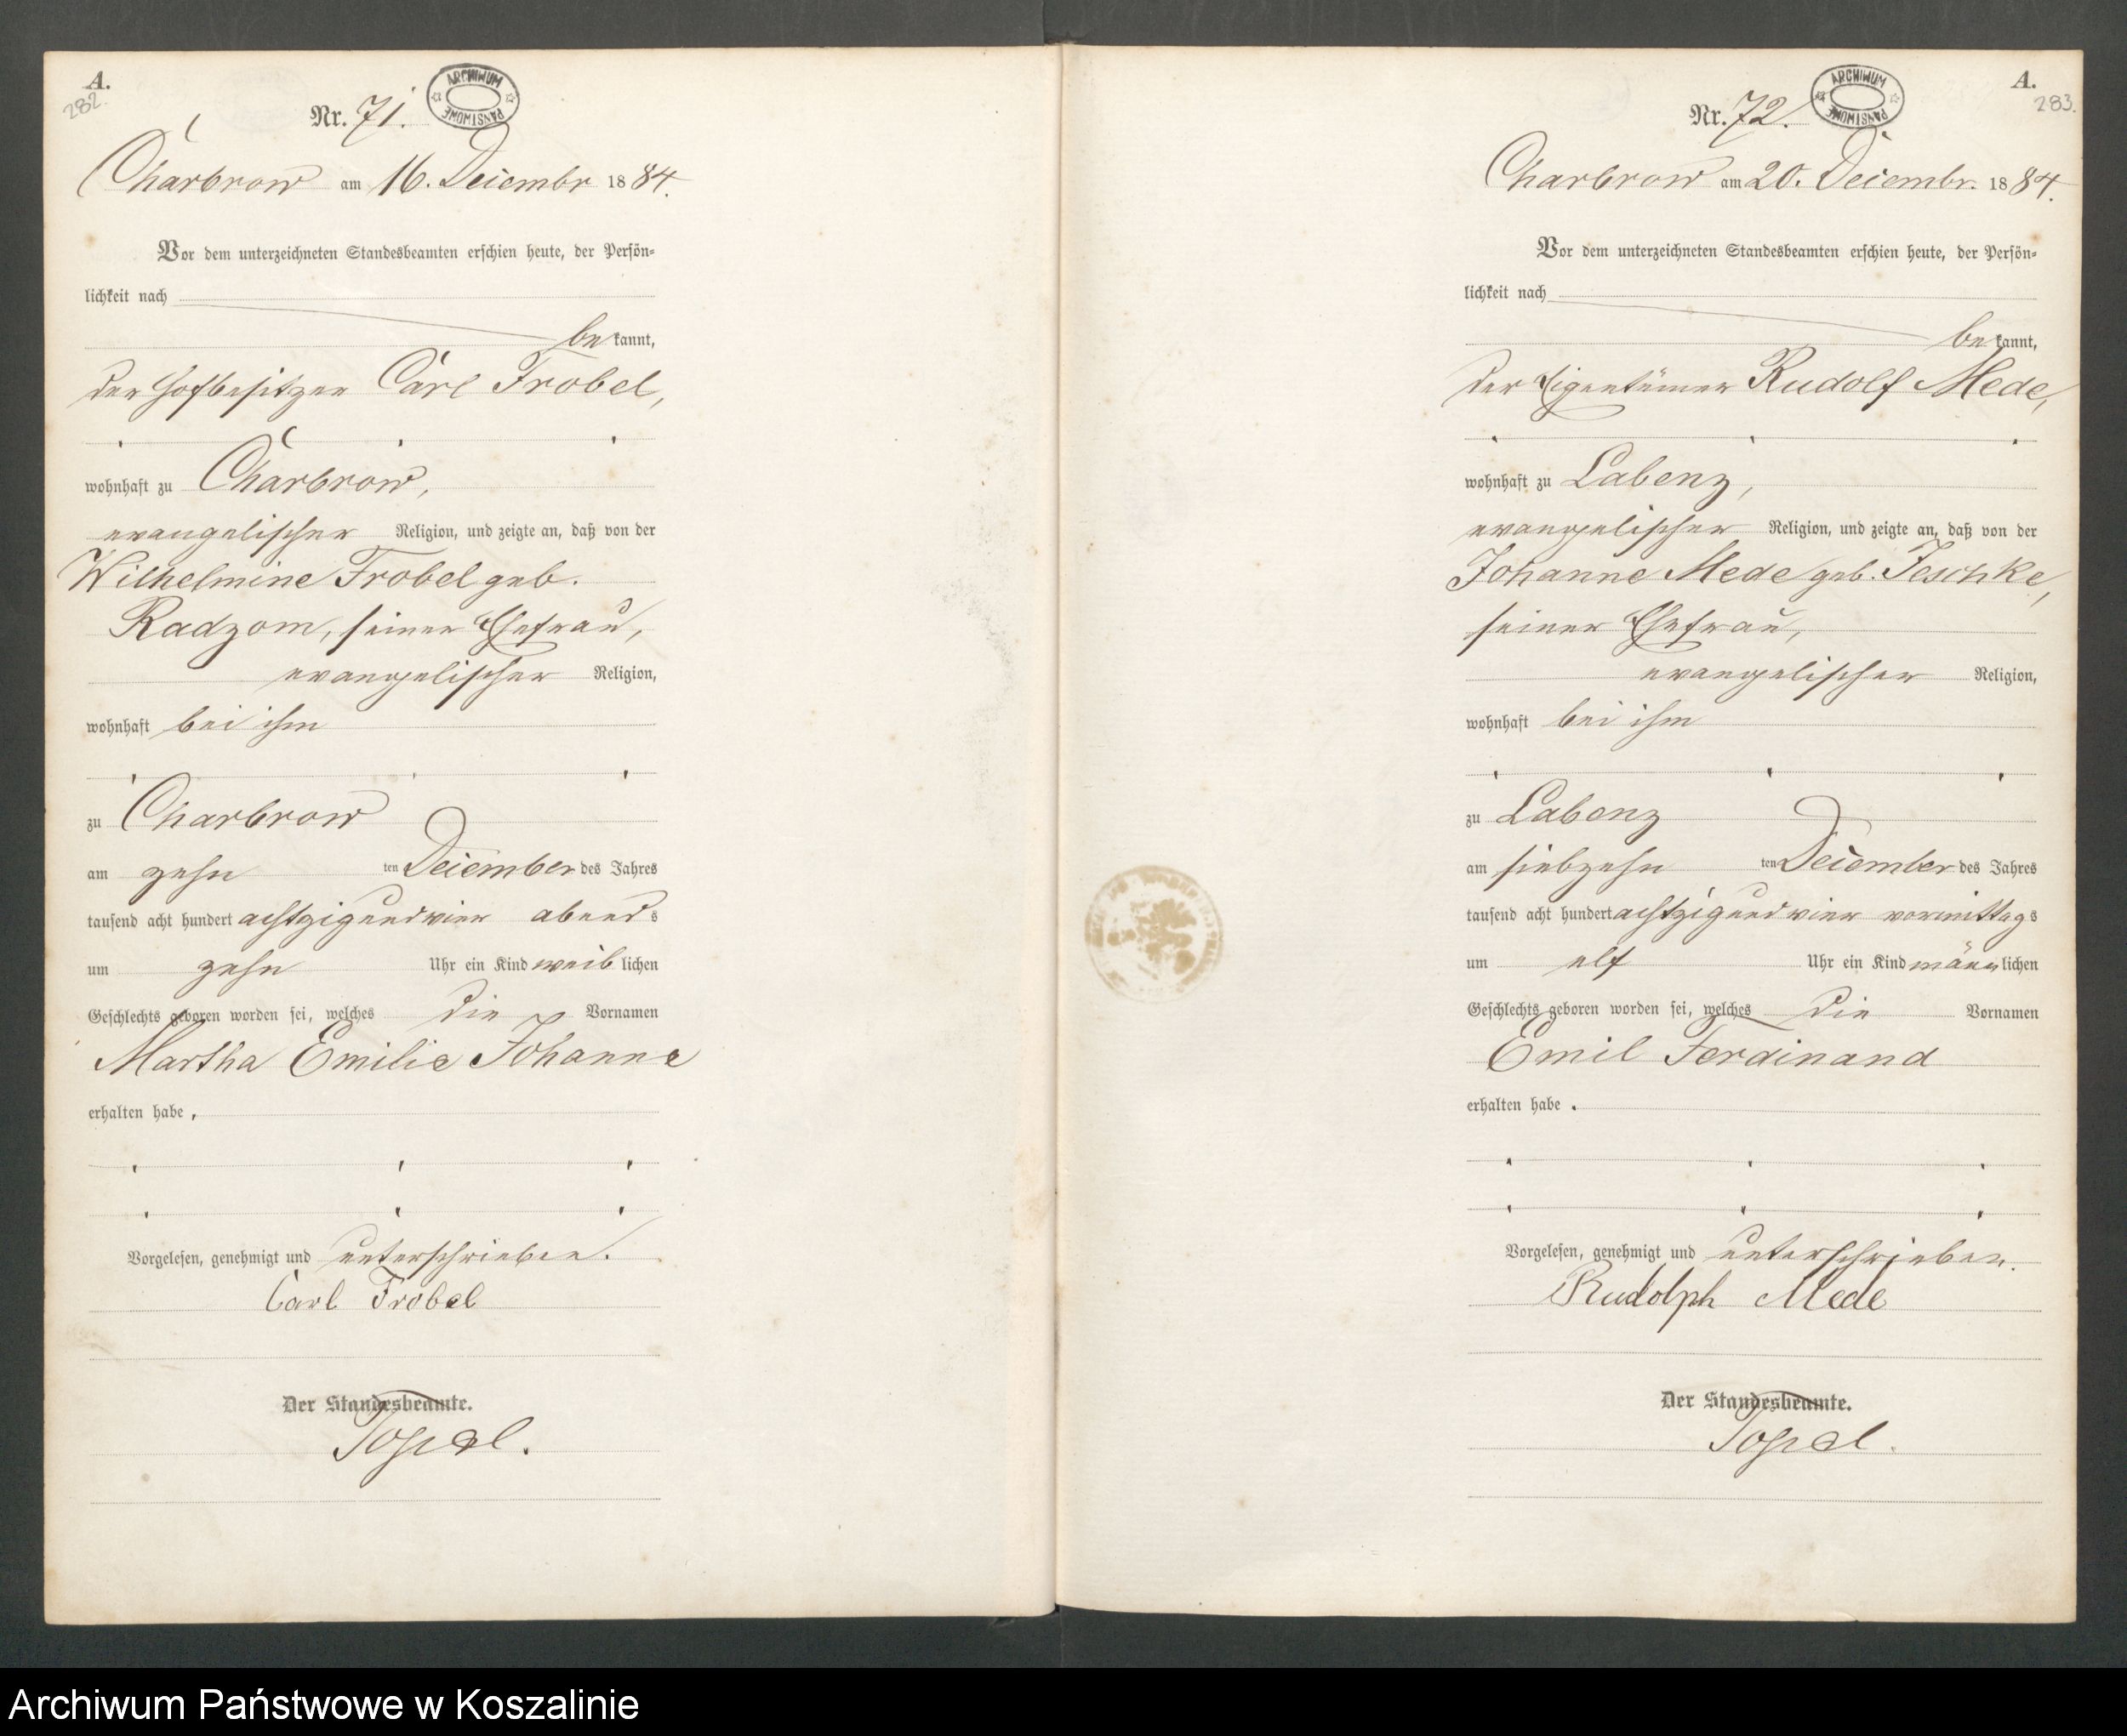 A.
282.
Nr. 71.
ARCHIWUM PAŃSTWOWE
Charbrow am 16. Dezembr 1884.
Vor dem unterzeichneten Standesbeamten erschien heute, der Persön-
lichkeit nach
bekannt,
der Hofbesitzer Carl Frobel,
wohnhaft zu Charbrow,
evangelischer Religion, und zeigte an, daß von der
Wilhelmine Frobel geb.
Radzom, seiner Ehefrau,
evangelischer Religion,
wohnhaft bei ihm
zu Charbrow
am zehn ten Dezember des Jahres
tausend acht hundert achtzigundvier abends
um zehn Uhr ein Kind weiblichen
Geschlechts geboren worden sei, welches die Vornamen
Martha Emilie Johanne
erhalten habe.
Vorgelesen, genehmigt und unterschrieben.
Carl Frobel
Der Standesbeamte.
A.
283.
Nr. 72.
ARCHIWUM PAŃSTWOWE
Charbrow am 20. Dezembr. 1884.
Vor dem unterzeichneten Standesbeamten erschien heute, der Persön-
lichkeit nach
bekannt,
der Eigentümer Rudolf Mede,
wohnhaft zu Labenz,
evangelischer Religion, und zeigte an, daß von der
Johanne Mede geb. Jeschke,
seiner Ehefrau,
evangelischer Religion,
wohnhaft bei ihm
zu Labenz
am siebzehn ten Dezember des Jahres
tausend acht hundert achtzigundvier vormittags
um elf Uhr ein Kind männlichen
Geschlechts geboren worden sei, welches die Vornamen
Emil Ferdinand
erhalten habe.
Vorgelesen, genehmigt und unterschrieben.
Rudolph Mede
Der Standesbeamte.
Archiwum Państwowe w Koszalinie